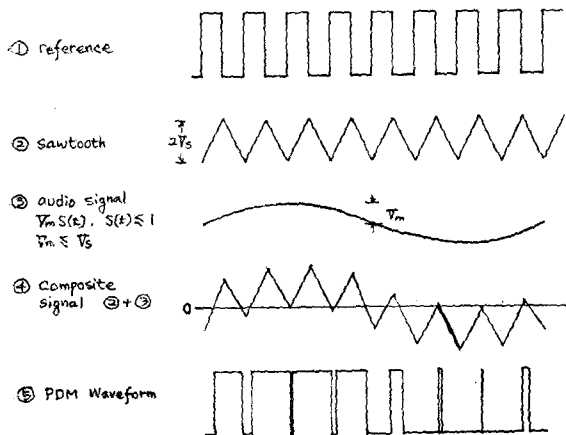 ① reference
② sawtooth
2Vs
③ audio signal
Vm S(t), S(t) ≤ 1
Vm ≤ Vs
Vm
④ Composite
signal ②+③
0
⑤ PDM Waveform